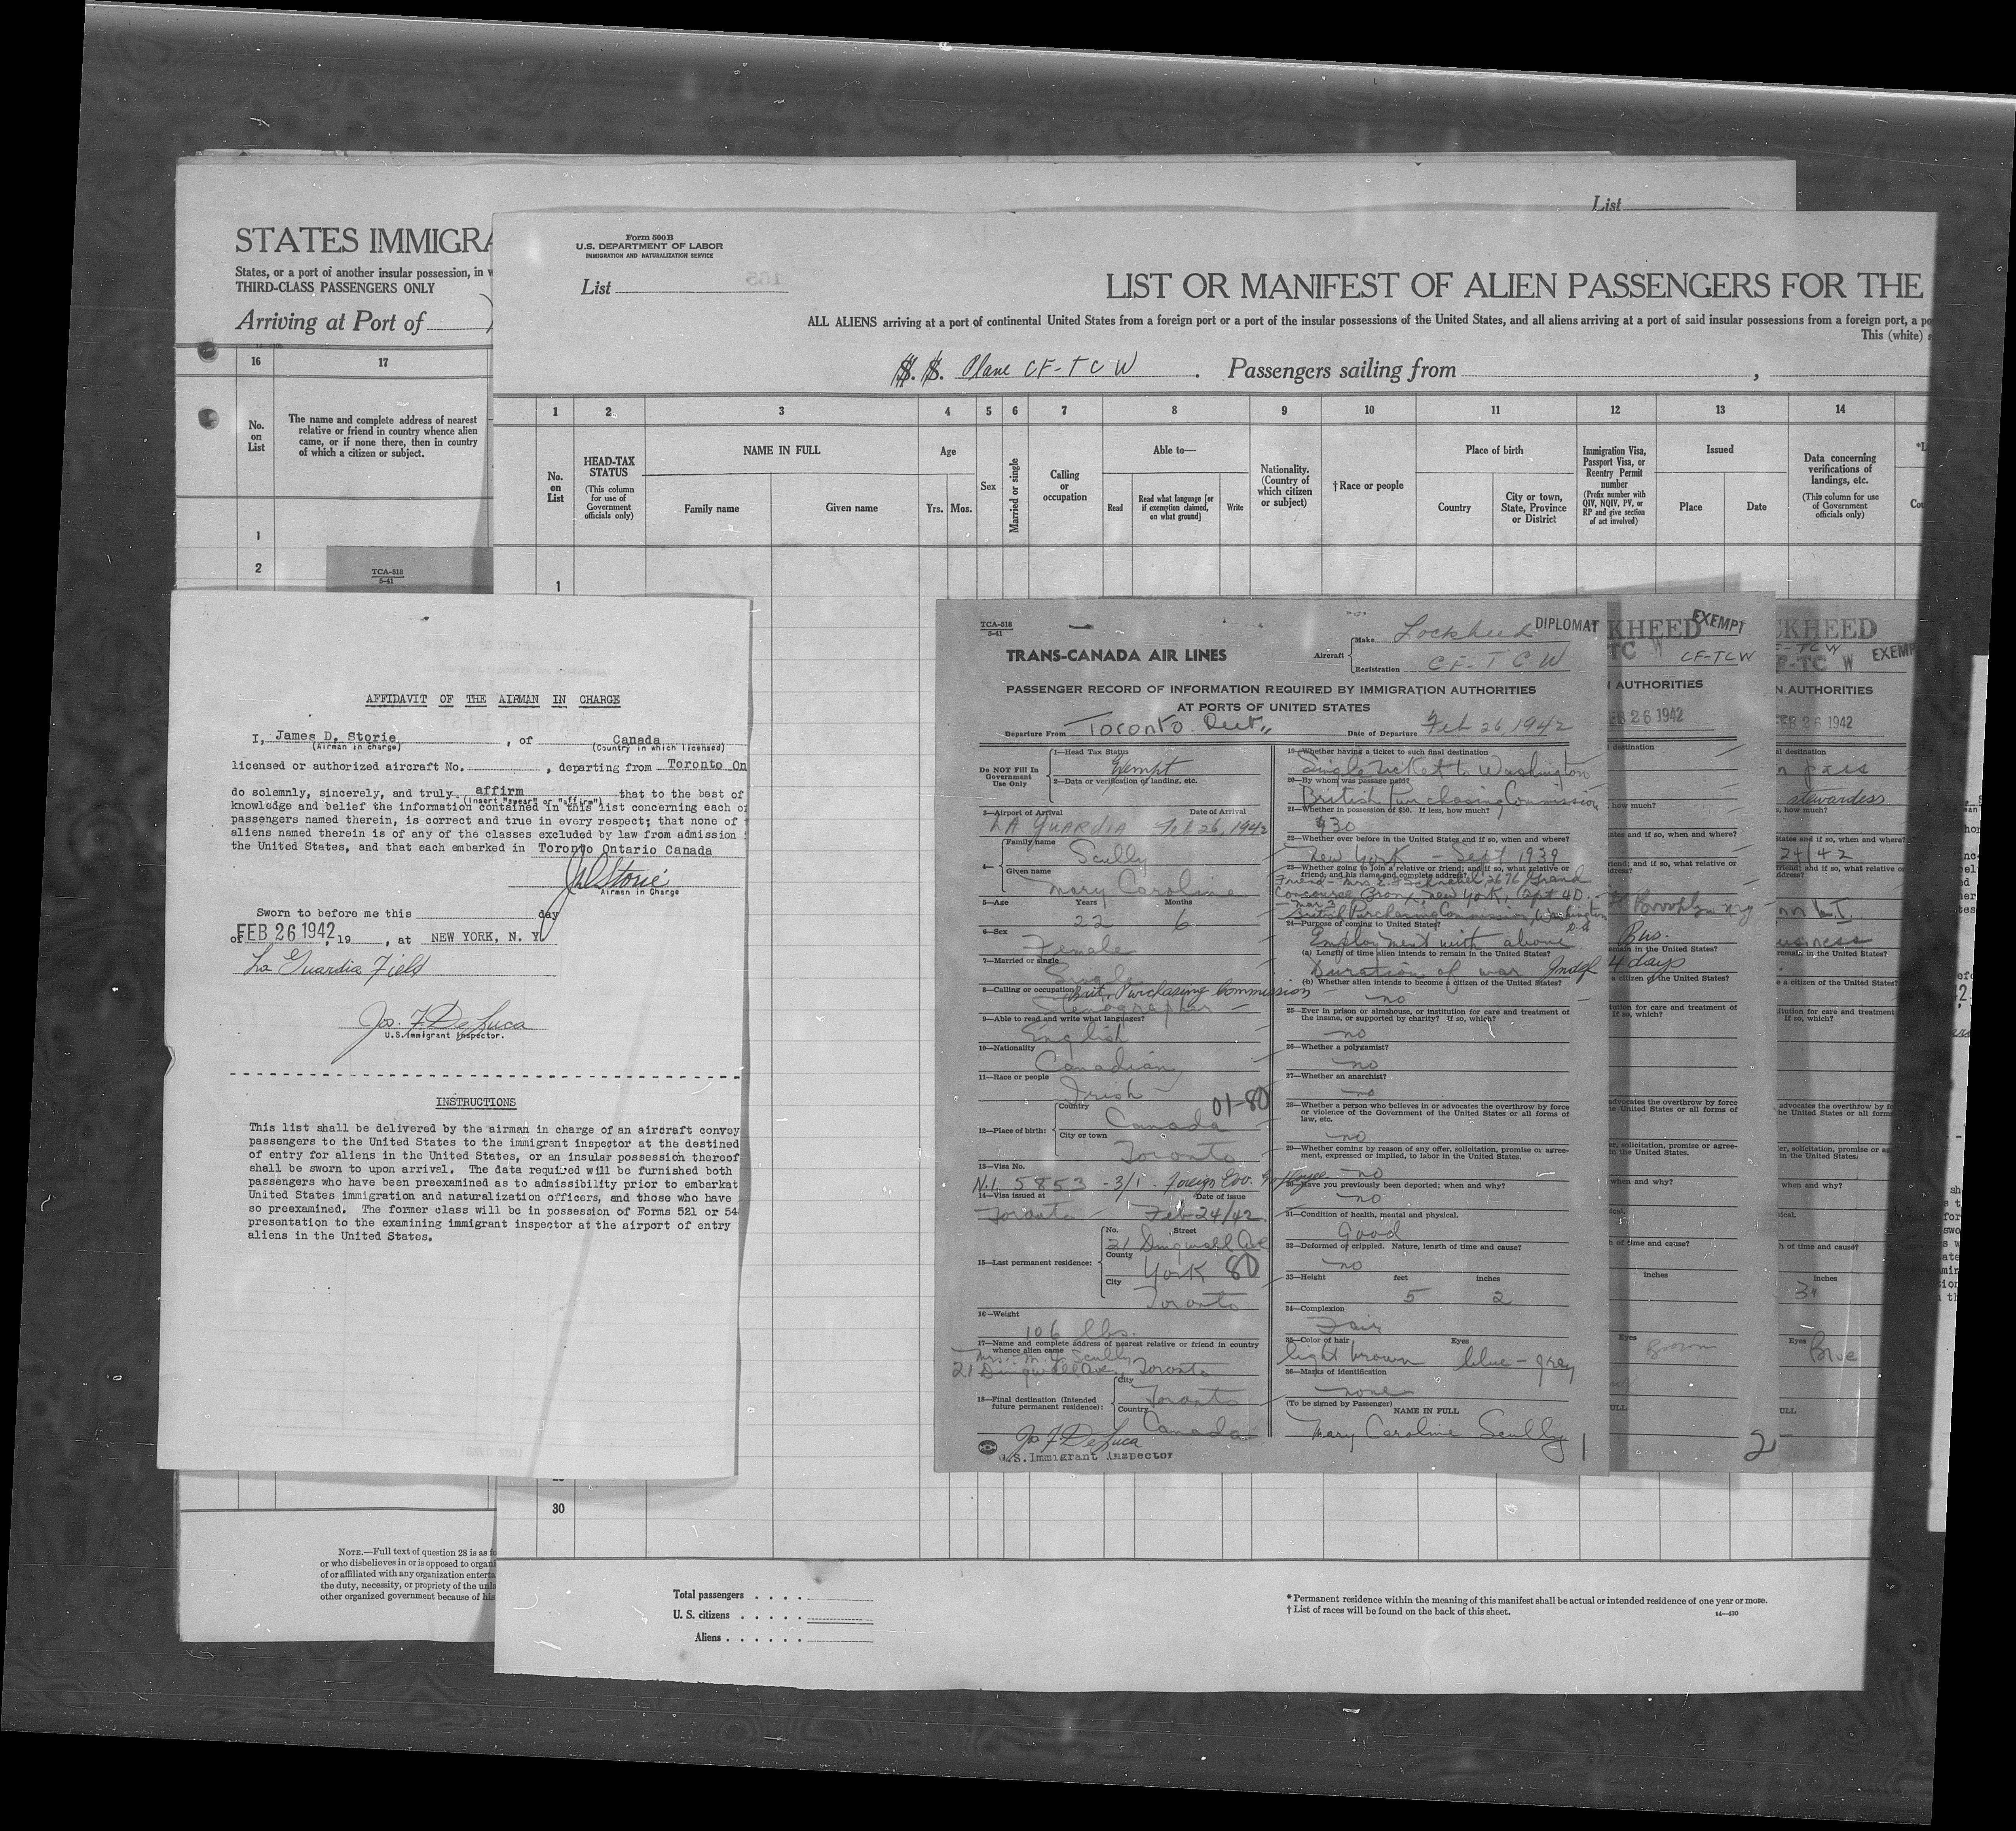 List
STATES IMMIGRA
States, or a port of another insular possession, in w
THIRD-CLASS PASSENGERS ONLY
Arriving at Port of
16 17
No. on List
The name and complete address of nearest
relative or friend in country whence alien
came, or if none there, then in country
of which a citizen or subject.
1
2
TCA-518
5-41
NOTE.—Full text of question 28 is as fo
or who disbelieves in or is opposed to organi
of or affiliated with any organization enterta
the duty, necessity, or propriety of the unla
other organized government because of his
Form 500 B
U.S. DEPARTMENT OF LABOR
IMMIGRATION AND NATURALIZATION SERVICE
List
LIST OR MANIFEST OF ALIEN PASSENGERS FOR THE
ALL ALIENS arriving at a port of continental United States from a foreign port or a port of the insular possessions of the United States, and all aliens arriving at a port of said insular possessions from a foreign port, a po
This (white) s
S. S. Plane CF-TCW . Passengers sailing from ,
1 2 3 4 5 6 7 8 9 10 11 12 13 14
No. on List
HEAD-TAX STATUS
(This column for use of Government officials only)
NAME IN FULL
Family name Given name
Age
Yrs. Mos.
Sex
Married or single
Calling or occupation
Able to—
Read
Read what language [or if exemption claimed, on what ground]
Write
Nationality. (Country of which citizen or subject)
†Race or people
Place of birth
Country
City or town, State, Province or District
Immigration Visa, Passport Visa, or Reentry Permit number
(Prefix number with QIV, NQIV, PV, or RP and give section of act involved)
Issued
Place Date
Data concerning verifications of landings, etc.
(This column for use of Government officials only)
*L
Cou
1
30
Total passengers . . . .
U. S. citizens . . . . .
Aliens . . . . . .
* Permanent residence within the meaning of this manifest shall be actual or intended residence of one year or more.
† List of races will be found on the back of this sheet.
14—430
AFFIDAVIT OF THE AIRMAN IN CHARGE
I, James D. Storie , of Canada
(Airman in charge) (Country in which licensed)
licensed or authorized aircraft No. , departing from Toronto On
do solemnly, sincerely, and truly affirm that to the best of
(Insert "swear" or "affirm")
knowledge and belief the information contained in this list concerning each of
passengers named therein, is correct and true in every respect; that none of t
aliens named therein is of any of the classes excluded by law from admission
the United States, and that each embarked in Toronto Ontario Canada
JD Storie
Airman in Charge
Sworn to before me this day
of FEB 26 1942, 19 , at NEW YORK, N. Y.
La Guardia Field
Jos. F. De Luca
U.S.Immigrant Inspector.
INSTRUCTIONS
This list shall be delivered by the airman in charge of an aircraft convey
passengers to the United States to the immigrant inspector at the destined
of entry for aliens in the United States, or an insular possession thereof
shall be sworn to upon arrival. The data required will be furnished both
passengers who have been preexamined as to admissibility prior to embarkat
United States immigration and naturalization officers, and those who have
so preexamined. The former class will be in possession of Forms 521 or 54
presentation to the examining immigrant inspector at the airport of entry
aliens in the United States.
TCA-518
5-41
TRANS-CANADA AIR LINES
Aircraft
Make Lockheed
Registration CF-TCW
DIPLOMAT
PASSENGER RECORD OF INFORMATION REQUIRED BY IMMIGRATION AUTHORITIES
AT PORTS OF UNITED STATES
Departure From Toronto Ont., Date of Departure Feb 26, 1942
Do NOT Fill In
Government
Use Only
1—Head Tax Status
Exempt
2—Data or verification of landing, etc.
3—Airport of Arrival Date of Arrival
LA GUARDIA Feb 26, 1942
4—
Family name
Scully
Given name
Mary Caroline
5—Age Years Months
22 6
6—Sex
Female
7—Married or single
Single
8—Calling or occupation Brit. Purchasing Commission
Stenographer
9—Able to read and write what languages?
English
10—Nationality
Canadian
11—Race or people
Irish
01-80
12—Place of birth:
Country
Canada
City or town
Toronto
13—Visa No.
N.I. 5853 - 3/1 - Foreign Gov. Employee
14—Visa issued at Date of issue
Toronto Feb 24/42
15—Last permanent residence:
No. Street
21 Dingwall Ave
County
York 80
City
Toronto
16—Weight
106 lbs.
17—Name and complete address of nearest relative or friend in country
whence alien came
Mrs. M. Scully
21 Dingwall Ave, Toronto
18—Final destination (Intended
future permanent residence):
City
Toronto
Country
Canada
Jos F De Luca
U.S. Immigrant Inspector
19—Whether having a ticket to such final destination
Single ticket to Washington
20—By whom was passage paid?
British Purchasing Commission
21—Whether in possession of $50. If less, how much?
$30
22—Whether ever before in the United States and if so, when and where?
New York - Sept 1939
23—Whether going to join a relative or friend; and if so, what relative or
friend, and his name and complete address?
Friend - Mrs. Schnabel 2676 Grand
Concourse Bronx New York, Apt 4D.
British Purchasing Commission, Washington
24—Purpose of coming to United States?
Employment with above
(a) Length of time alien intends to remain in the United States?
Duration of war Indef
(b) Whether alien intends to become a citizen of the United States?
no
25—Ever in prison or almshouse, or institution for care and treatment of
the insane, or supported by charity? If so, which?
no
26—Whether a polygamist?
no
27—Whether an anarchist?
no
28—Whether a person who believes in or advocates the overthrow by force
or violence of the Government of the United States or all forms of
law, etc.
no
29—Whether coming by reason of any offer, solicitation, promise or agree-
ment, expressed or implied, to labor in the United States.
no
30—Have you previously been deported; when and why?
no
31—Condition of health, mental and physical.
Good
32—Deformed or crippled. Nature, length of time and cause?
no
33—Height feet inches
5 2
34—Complexion
Fair
35—Color of hair Eyes
light brown blue-grey
36—Marks of identification
none
(To be signed by Passenger)
NAME IN FULL
Mary Caroline Scully
1
KHEED EXEMPT
TC W CF-TCW
AUTHORITIES
EB 26 1942
destination
how much?
ates and if so, when and where?
Brooklyn NY
Bus.
4 days
a citizen of the United States?
inches
Eyes
Brown
2
CKHEED
F-TCW
W EXEMP
N AUTHORITIES
FEB 26 1942
al destination
pass
stewardess
, how much?
24/42
usiness
e a citizen of the United States?
inches
3½
Eyes
Blue
ULL